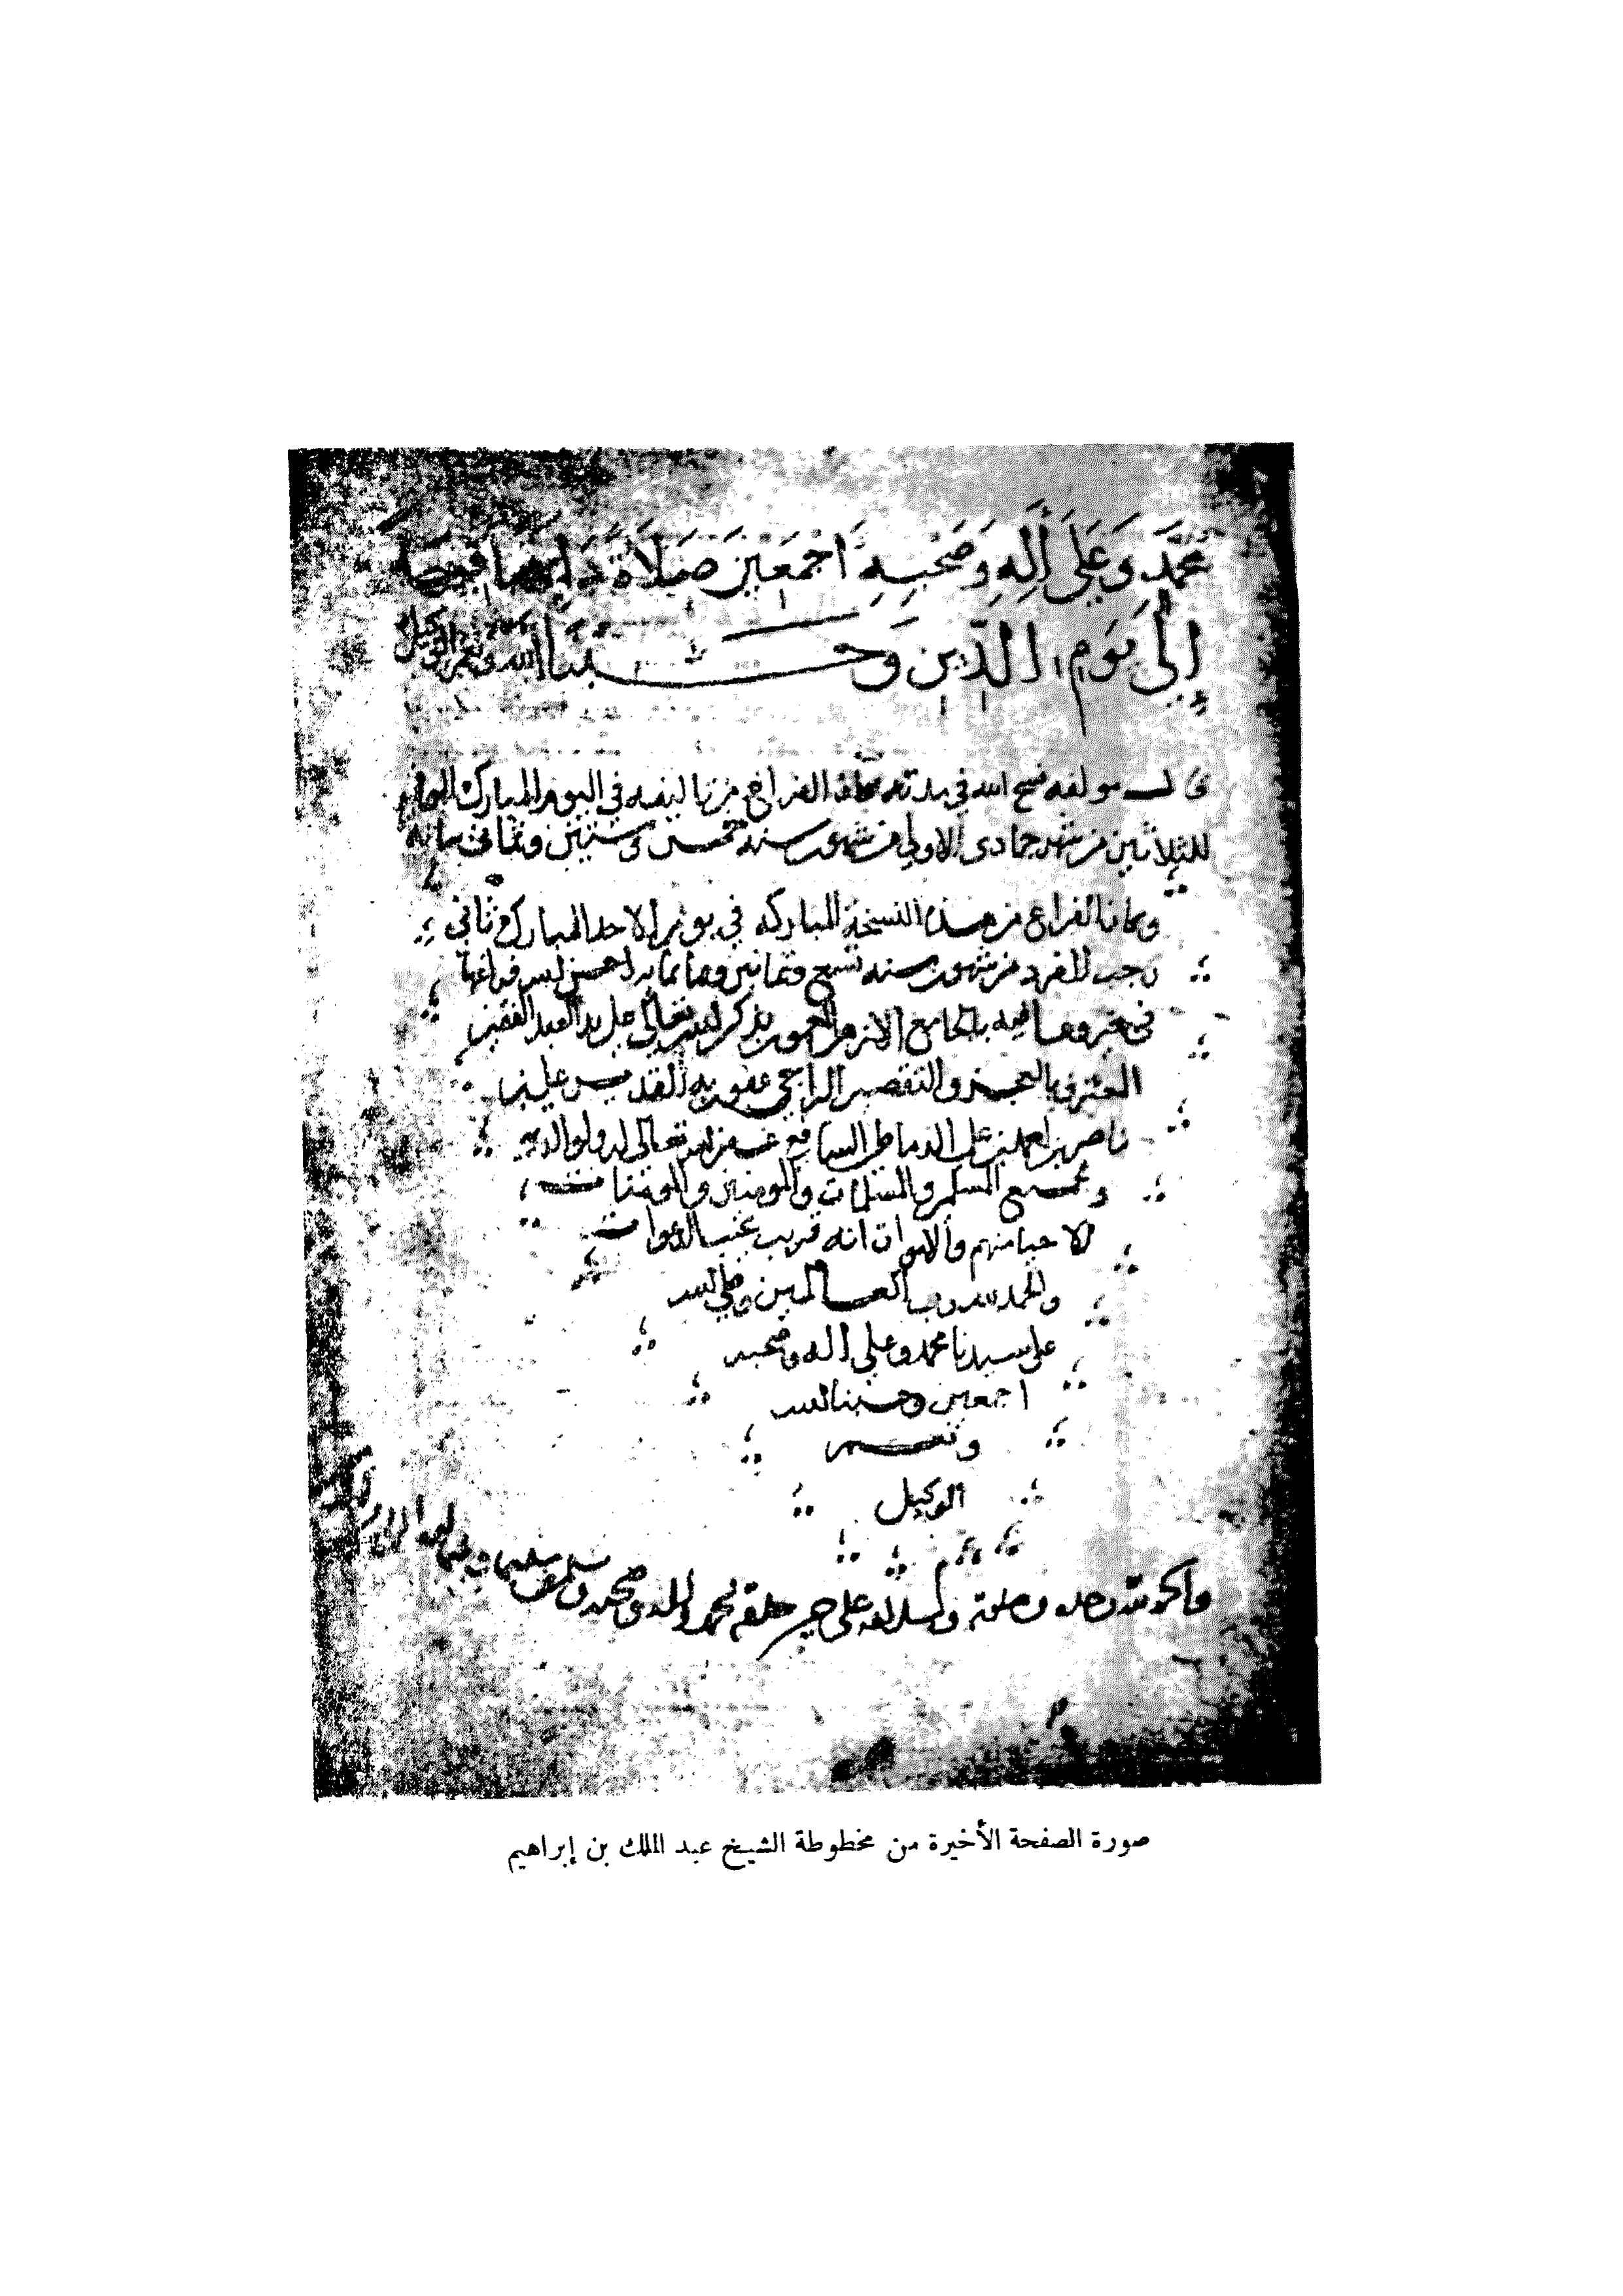 مُحَمَّدٍ وَعَلَى اٰلِهِ وَصَحْبِهِ اَجْمَعِيْنَ صَلَاةً دَايِمَةً
اِلَى يَوْمِ الدِّيْنِ وَحَسْبُنَا اللّه ونعم الوكيل
قال مولفه فسح الله في مدته الفراغ من تاليفه في اليوم المبارك
للثلاثين من شهر جمادى الاولى من شهور سنه خمس وستين وثماني مائه
وكان الفراغ من هذه النسخة المباركه في يوم الاحد المبارك ثاني
رجب الفرد من شهور سنه تسع وثمانين وثمانمايه احسن الله
في خير وعافيه بالجامع الازهر المعمور بذكر الله تعالى على يد العبد الفقير
المعترف بالعجز والتقصير الراجي عفو ربه القدير علي بن
ناصر بن علي الدماطي الشافعي غفر الله تعالى له ولوالديه
وجميع المسلمين والمسلمات والمومنين والمومنات
الاحيا منهم والاموات انه قريب مجيب الدعوات
والحمد لله رب العالمين وصلى الله
على سيدنا محمد وعلى اله وصحبه
اجمعين وحسبنا الله
ونعم
الوكيل
والحمد لله وحده وصلاته وسلامه على خير خلقه محمد واله وصحبه وسلم
صورة الصفحة الأخيرة من مخطوطة الشيخ عبد الملك بن إبراهيم